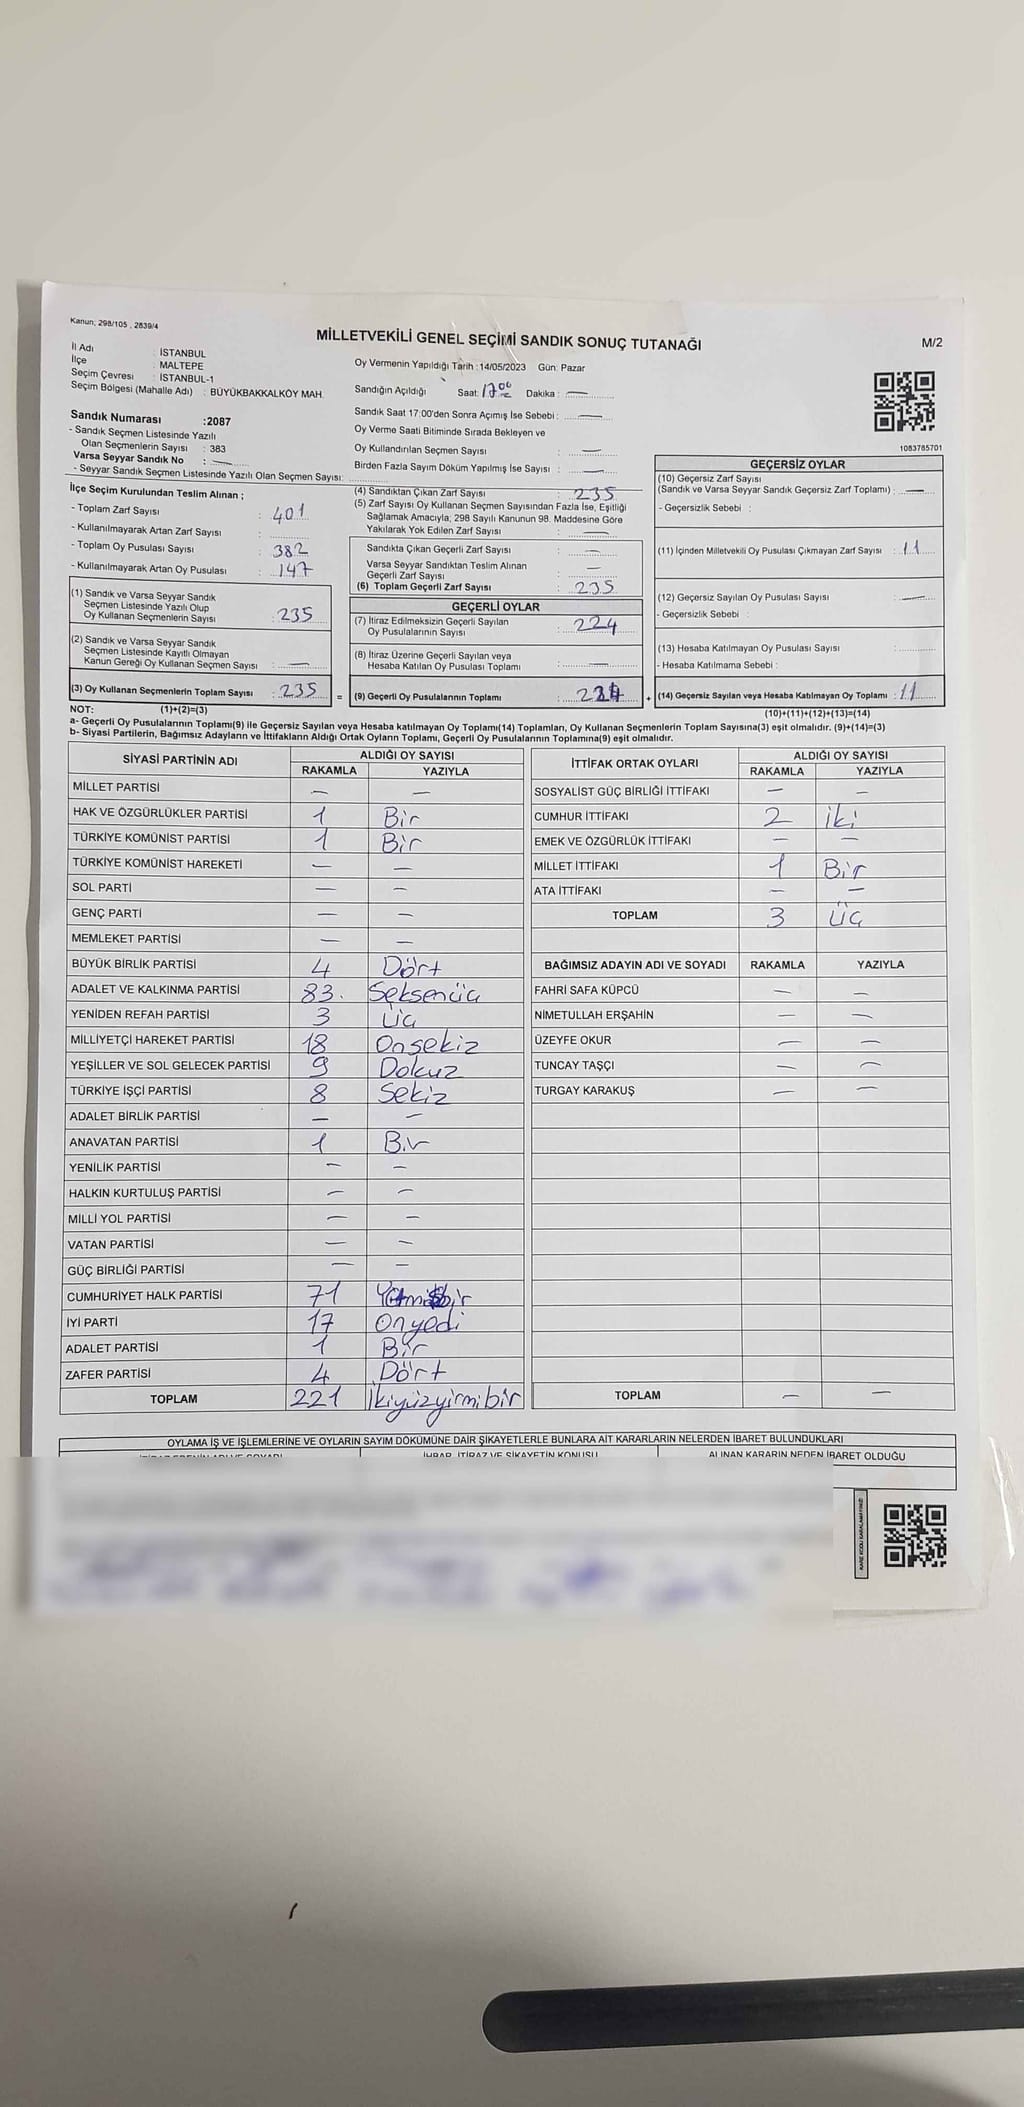 Kanun; 298/105 , 2839/4
MİLLETVEKİLİ GENEL SEÇİMİ SANDIK SONUÇ TUTANAĞI
M/2
İl Adı : İSTANBUL
İlçe : MALTEPE
Seçim Çevresi : İSTANBUL-1
Seçim Bölgesi (Mahalle Adı) : BÜYÜKBAKKALKÖY MAH.
Oy Vermenin Yapıldığı Tarih :14/05/2023 Gün: Pazar
Sandığın Açıldığı Saat: 17.00 Dakika : —
Sandık Saat 17:00'den Sonra Açımış İse Sebebi : —
Oy Verme Saati Bitiminde Sırada Bekleyen ve
Oy Kullandırılan Seçmen Sayısı : —
Birden Fazla Sayım Döküm Yapılmış İse Sayısı : —
1083765701
Sandık Numarası :2087
- Sandık Seçmen Listesinde Yazılı
Olan Seçmenlerin Sayısı : 383
Varsa Seyyar Sandık No : —
- Seyyar Sandık Seçmen Listesinde Yazılı Olan Seçmen Sayısı:
İlçe Seçim Kurulundan Teslim Alınan ;
- Toplam Zarf Sayısı : 401
- Kullanılmayarak Artan Zarf Sayısı :
- Toplam Oy Pusulası Sayısı : 382
- Kullanılmayarak Artan Oy Pusulası : 147
(1) Sandık ve Varsa Seyyar Sandık
Seçmen Listesinde Yazılı Olup
Oy Kullanan Seçmenlerin Sayısı : 235
(2) Sandık ve Varsa Seyyar Sandık
Seçmen Listesinde Kayıtlı Olmayan
Kanun Gereği Oy Kullanan Seçmen Sayısı : —
(3) Oy Kullanan Seçmenlerin Toplam Sayısı : 235 =
(4) Sandıktan Çıkan Zarf Sayısı : 235
(5) Zarf Sayısı Oy Kullanan Seçmen Sayısından Fazla İse, Eşitliği
Sağlamak Amacıyla; 298 Sayılı Kanunun 98. Maddesine Göre
Yakılarak Yok Edilen Zarf Sayısı : —
Sandıkta Çıkan Geçerli Zarf Sayısı : —
Varsa Seyyar Sandıktan Teslim Alınan
Geçerli Zarf Sayısı : —
(6) Toplam Geçerli Zarf Sayısı : 235
GEÇERLİ OYLAR
(7) İtiraz Edilmeksizin Geçerli Sayılan
Oy Pusulalarının Sayısı : 224
(8) İtiraz Üzerine Geçerli Sayılan veya
Hesaba Katılan Oy Pusulası Toplamı : —
(9) Geçerli Oy Pusulalarının Toplamı : 224 +
GEÇERSİZ OYLAR
(10) Geçersiz Zarf Sayısı
(Sandık ve Varsa Seyyar Sandık Geçersiz Zarf Toplamı) : —
- Geçersizlik Sebebi :
(11) İçinden Milletvekili Oy Pusulası Çıkmayan Zarf Sayısı : 11
(12) Geçersiz Sayılan Oy Pusulası Sayısı : —
- Geçersizlik Sebebi :
(13) Hesaba Katılmayan Oy Pusulası Sayısı :
- Hesaba Katılmama Sebebi :
(14) Geçersiz Sayılan veya Hesaba Katılmayan Oy Toplamı : 11
NOT: (1)+(2)=(3) (10)+(11)+(12)+(13)=(14)
a- Geçerli Oy Pusulalarının Toplamı(9) ile Geçersiz Sayılan veya Hesaba katılmayan Oy Toplamı(14) Toplamları, Oy Kullanan Seçmenlerin Toplam Sayısına(3) eşit olmalıdır. (9)+(14)=(3)
b- Siyasi Partilerin, Bağımsız Adayların ve İttifakların Aldığı Ortak Oyların Toplamı, Geçerli Oy Pusulalarının Toplamına(9) eşit olmalıdır.
SİYASİ PARTİNİN ADI ALDIĞI OY SAYISI
RAKAMLA YAZIYLA
MİLLET PARTİSİ — —
HAK VE ÖZGÜRLÜKLER PARTİSİ 1 Bir
TÜRKİYE KOMÜNİST PARTİSİ 1 Bir
TÜRKİYE KOMÜNİST HAREKETİ — —
SOL PARTİ — —
GENÇ PARTİ — —
MEMLEKET PARTİSİ — —
BÜYÜK BİRLİK PARTİSİ 4 Dört
ADALET VE KALKINMA PARTİSİ 83. Seksenüç
YENİDEN REFAH PARTİSİ 3 Üç
MİLLİYETÇİ HAREKET PARTİSİ 18 Onsekiz
YEŞİLLER VE SOL GELECEK PARTİSİ 9 Dokuz
TÜRKİYE İŞÇİ PARTİSİ 8 Sekiz
ADALET BİRLİK PARTİSİ — —
ANAVATAN PARTİSİ 1 Bir
YENİLİK PARTİSİ — —
HALKIN KURTULUŞ PARTİSİ — —
MİLLİ YOL PARTİSİ — —
VATAN PARTİSİ — —
GÜÇ BİRLİĞİ PARTİSİ — —
CUMHURİYET HALK PARTİSİ 71 Yetmişbir
İYİ PARTİ 17 Onyedi
ADALET PARTİSİ 1 Bir
ZAFER PARTİSİ 4 Dört
TOPLAM 221 İkiyüzyirmibir
İTTİFAK ORTAK OYLARI ALDIĞI OY SAYISI
RAKAMLA YAZIYLA
SOSYALİST GÜÇ BİRLİĞİ İTTİFAKI — —
CUMHUR İTTİFAKI 2 İki
EMEK VE ÖZGÜRLÜK İTTİFAKI — —
MİLLET İTTİFAKI 1 Bir
ATA İTTİFAKI — —
TOPLAM 3 Üç
BAĞIMSIZ ADAYIN ADI VE SOYADI RAKAMLA YAZIYLA
FAHRİ SAFA KÜPCÜ — —
NİMETULLAH ERŞAHİN — —
ÜZEYFE OKUR — —
TUNCAY TAŞÇI — —
TURGAY KARAKUŞ — —
TOPLAM — —
OYLAMA İŞ VE İŞLEMLERİNE VE OYLARIN SAYIM DÖKÜMÜNE DAİR ŞİKAYETLERLE BUNLARA AİT KARARLARIN NELERDEN İBARET BULUNDUKLARI
İHBAR, İTİRAZ VE ŞİKAYETİN KONUSU ALINAN KARARIN NEDEN İBARET OLDUĞU